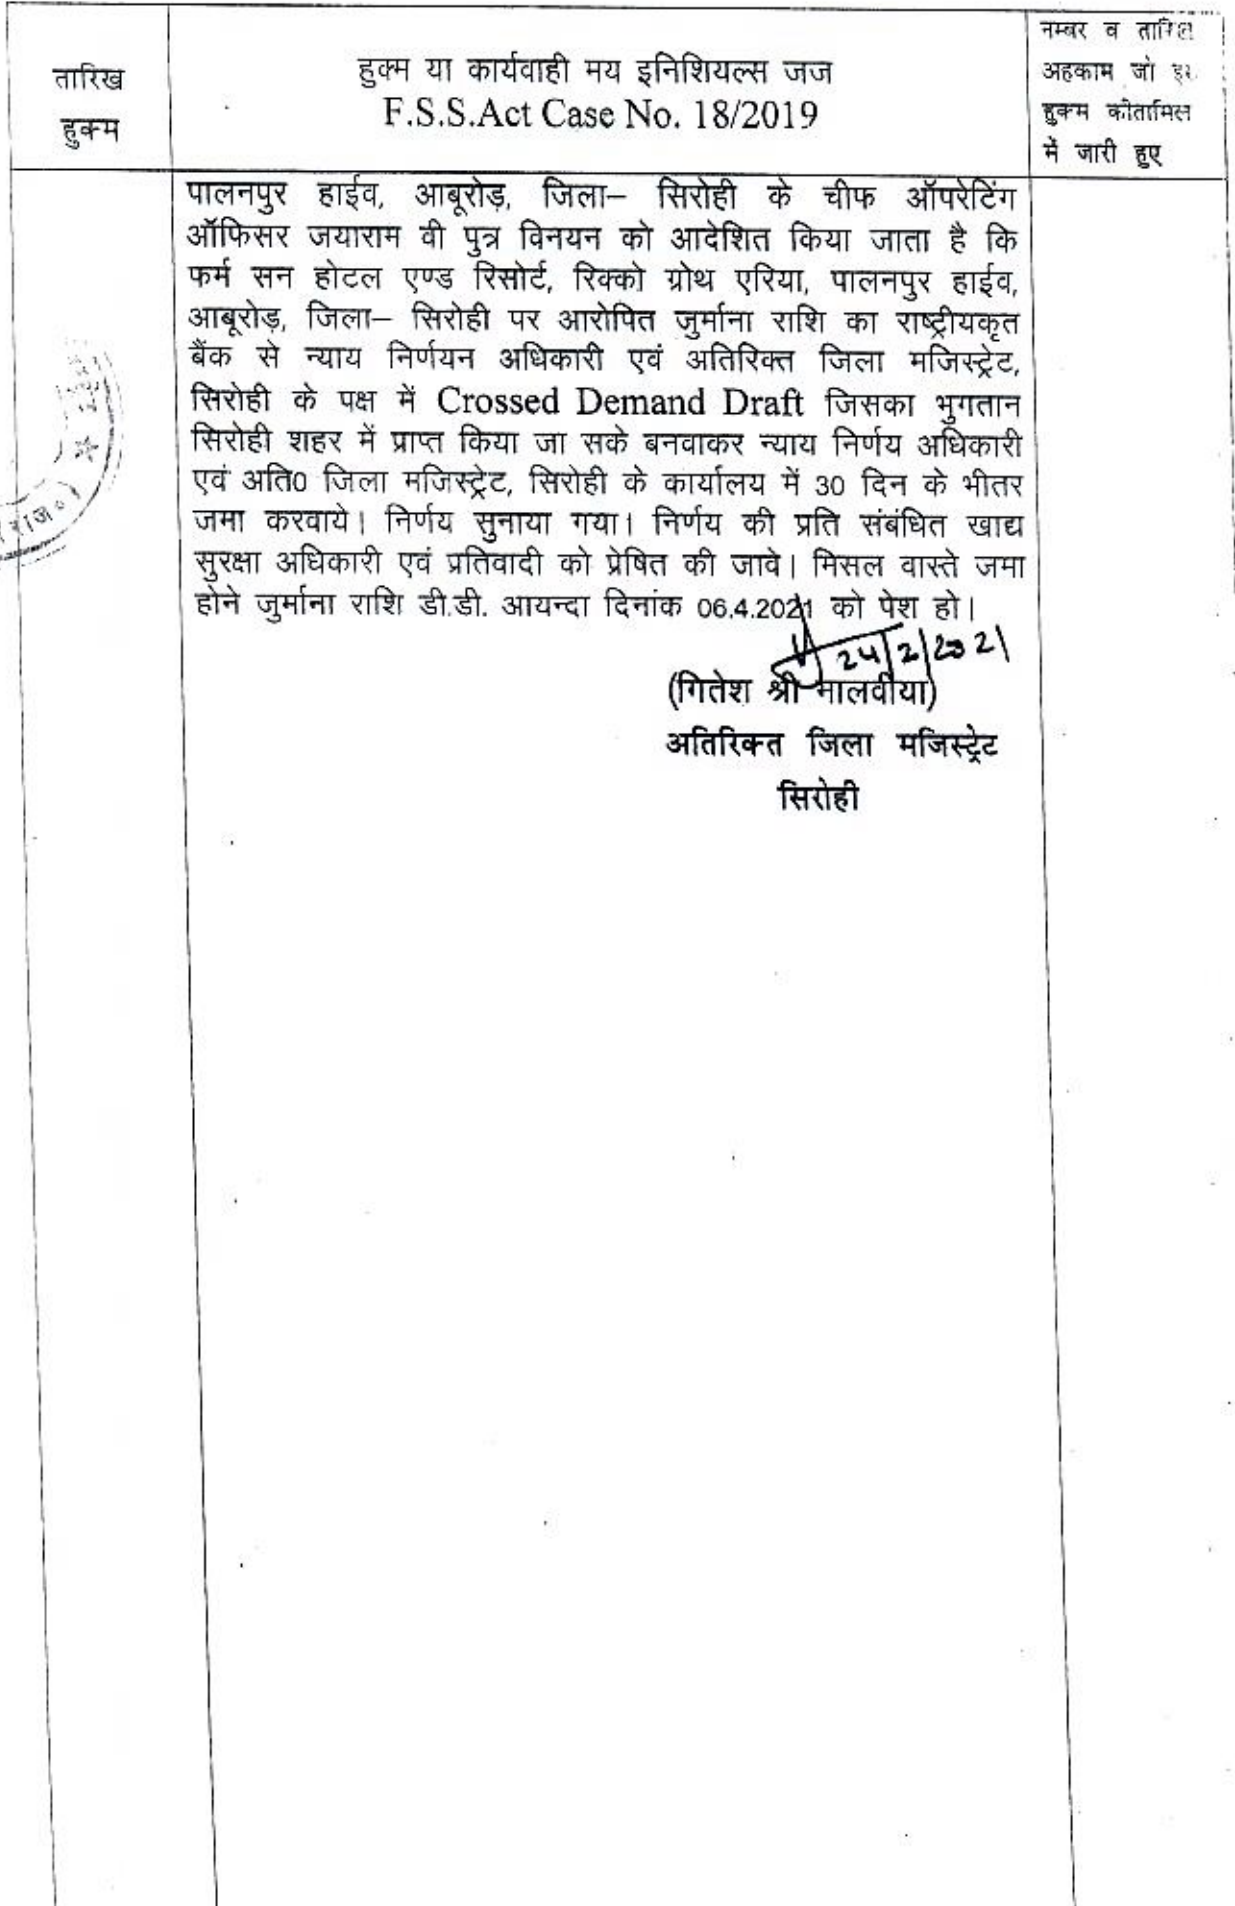 तारिख
हुक्म
हुक्म या कार्यवाही मय इनिशियल्स जज
F.S.S.Act Case No. 18/2019
नम्बर व तारिख
अहकाम जो इस
हुक्म कीतामिल
में जारी हुए
पालनपुर हाईव, आबूरोड़, जिला– सिरोही के चीफ ऑपरेटिंग
ऑफिसर जयाराम वी पुत्र विनयन को आदेशित किया जाता है कि
फर्म सन होटल एण्ड रिसोर्ट, रिक्को ग्रोथ एरिया, पालनपुर हाईव,
आबूरोड़, जिला– सिरोही पर आरोपित जुर्माना राशि का राष्ट्रीयकृत
बैंक से न्याय निर्णयन अधिकारी एवं अतिरिक्त जिला मजिस्ट्रेट,
सिरोही के पक्ष में Crossed Demand Draft जिसका भुगतान
सिरोही शहर में प्राप्त किया जा सके बनवाकर न्याय निर्णय अधिकारी
एवं अति0 जिला मजिस्ट्रेट, सिरोही के कार्यालय में 30 दिन के भीतर
जमा करवाये। निर्णय सुनाया गया। निर्णय की प्रति संबंधित खाद्य
सुरक्षा अधिकारी एवं प्रतिवादी को प्रेषित की जावे। मिसल वास्ते जमा
होने जुर्माना राशि डी.डी. आयन्दा दिनांक 06.4.2021 को पेश हो।
24/2/2021
(गितेश श्री मालवीया)
अतिरिक्त जिला मजिस्ट्रेट
सिरोही